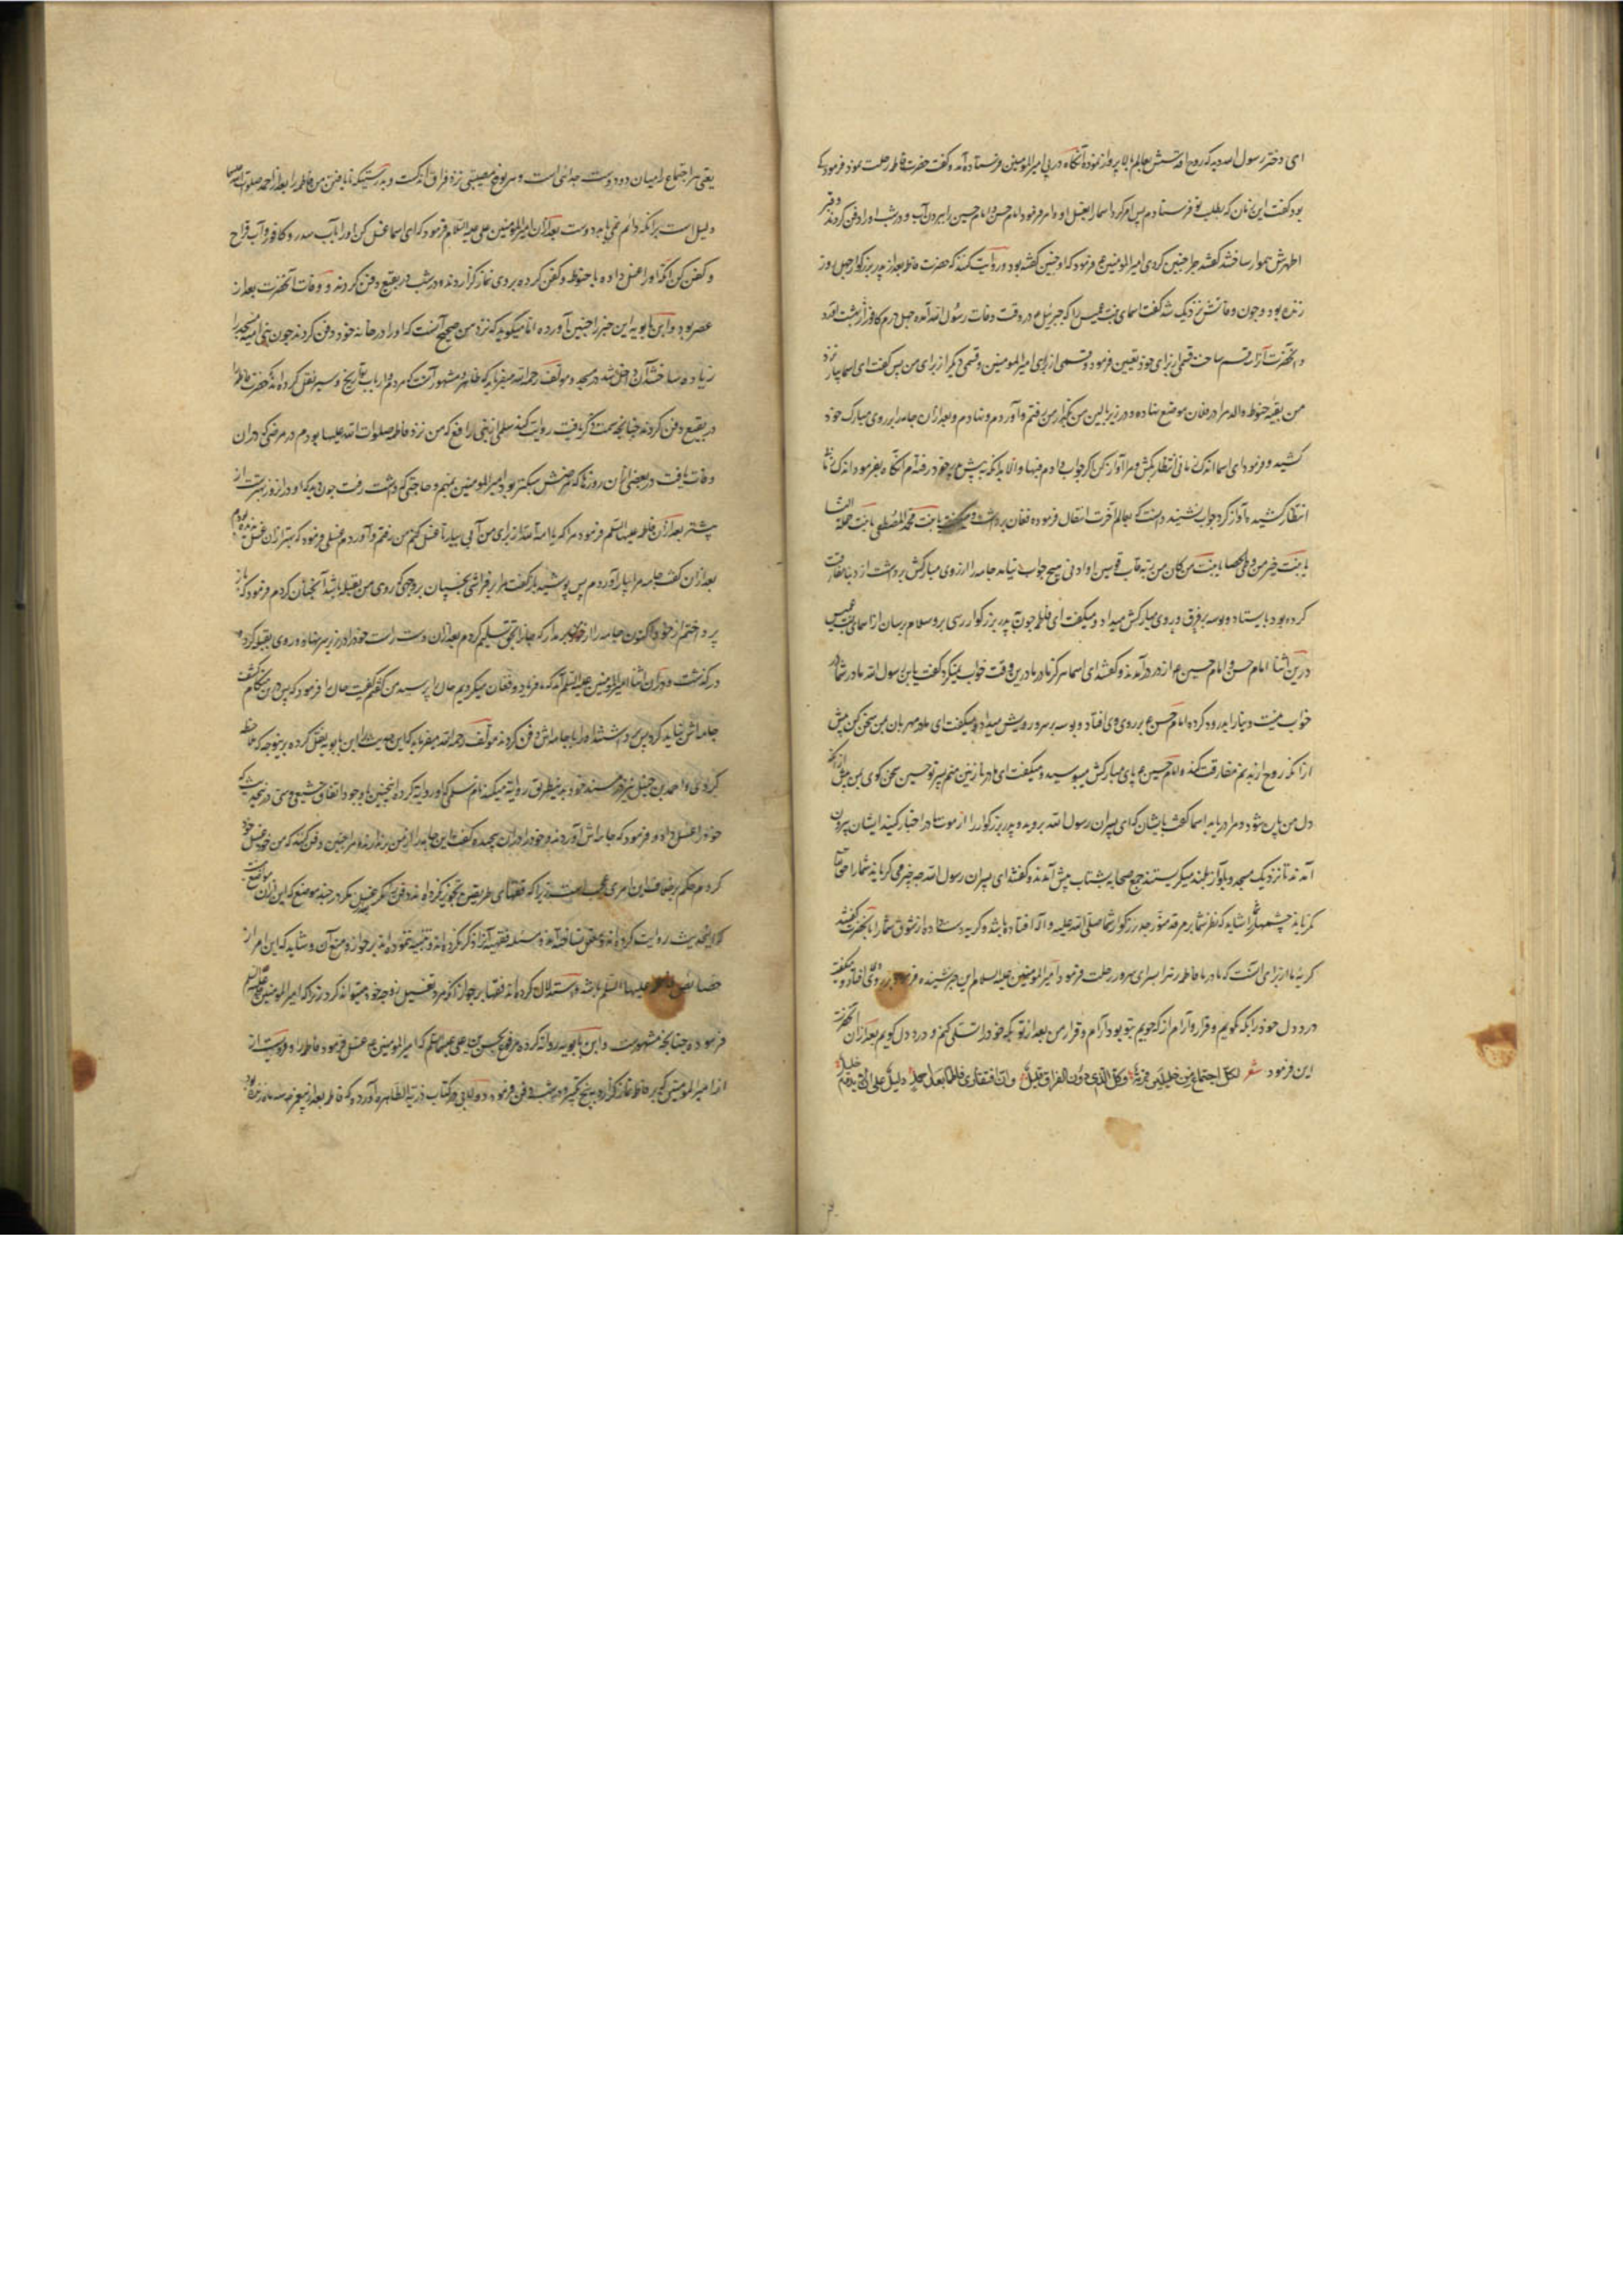 ای دختر رسول الله بدیدم که روح اقدسش بعالم بالا پرواز نموده آنگاه در پی امیرالمومنین فرستاده آمد و گفت حضرت فاطمه رحلت نمود فرمود که
بود گفت این زمان که بطلب تو فرستادم پس امر کرد اسما را بغسل او و امر فرمود امام حسن و امام حسین را بیرون آب و در شب او را دفن کردند و قبر
اطهرش هموار ساختند گفتند چرا چنین کردی امیرالمومنین ع فرمود که او چنین گفته بود و روایت کنند که حضرت فاطمه بعد از پدر بزرگوار چهل روز
زنده بود و چون وفاتش نزدیک شد گفت اسمای بنت عمیس را که جبرئیل ع در وقت وفات رسول الله آمد چهل درم کافور از بهشت آورد
و آنحضرت آنرا قسم ساخت قسمی از برای خود تعیین فرمود و قسمی از برای امیرالمومنین و قسمی دیگر از برای من پس گفت ای اسما بیار نزد
من بقیه حنوط والد مرا در فلان موضع نهاده و در زیر بالین من بگذار من رفتم و آوردم و نهادم و بعد از آن جامه را بر روی مبارک خود
کشید و فرمود ای اسما اندک زمانی انتظار بکش و مرا آواز کن اگر جواب دادم فبها و الا بدانکه پیش پدر خود رفته‌ام آنگاه بفرموده اندک زمانی
انتظار کشیده آواز کرد جواب نشنید دانست که بعالم آخرت انتقال فرموده فغان برداشت و میگفت یا بنت محمد المصطفی یا بنت حملة النسا
یا بنت خیر من وطی الحصا یا بنت من کان من ربه قاب قوسین او ادنی هیچ جواب نیامد جامه را از روی مبارکش برداشت از دنیا مفارقت
کرده بود بایستاد و بوسه بر فرق و روی مبارکش میداد و میگفت ای فاطمه چون به پدر بزرگوار رسی برو سلام برسان از اسمای بنت عمیس
درین اثنا امام حسن و امام حسین ع از در درآمدند و گفتند ای اسما هرگز مادر ما درین وقت خواب نمیکرد گفت یا بن رسول الله مادر شما در
خواب نیست دنیا را بدرود کرده امام حسن ع بر روی وی افتاد و بوسه بر سر و رویش میداد و میگفت ای مادر مهربان بمن سخن کن پیش
از آنکه روح از بدنم مفارقت کند و امام حسین ع پای مبارکش میبوسید و میگفت ای مادر نازنین منم پسر تو حسین سخن گوی بمن پیش از آنکه
دل من پاره شود و مرا دریاب اسما گفت بایشان که ای پسران رسول الله بروید و پدر بزرگوار را از موت مادر اخبار کنید ایشان بیرون
آمدند تا نزدیک مسجد و بآواز بلند میگریستند جمع صحابه بشتاب پیش آمدند و گفتند ای پسران رسول الله چه چیز می‌گریاند شما را حق تعالی
نگریاند چشمهای شما را شاید که نظر شما بر مرقد منور جد بزرگوار شما صلی الله علیه و آله افتاده باشد و گریه دست داده از شوق شما را بآنحضرت گفتند
گریه ما از برای آنست که مادر ما فاطمه زهرا بسرای سرور رحلت فرمود امیرالمومنین علیه السلام این خبر شنیده بر روی افتاد و میگفت
درد دل خود را بکه گویم و قرار و آرام از که جویم بتو بود آرام و قرار من بعد از تو بکه خود را تسلی کنم و درد دل گویم بعد از آن آنحضرت
این فرمود شعر لکل اجتماع من خلیلین فرقة وکل الذی دون الفراق قلیل وان افتقادی فاطما بعد احمد دلیل علی ان لا یدوم خلیل
یعنی هر اجتماع را میان دو دوست جدائی است و هر نوع مصیبتی نزد فراق اندکست و بدرستیکه نایافتن من فاطمه را بعد از احمد صلوات الله علیهما
دلیل است برآنکه دائم نمی‌ماند دوست بعد از آن امیرالمومنین علی علیه السلام فرمود که ای اسما غسل کن او را بآب سدر و کافور و آب قراح
و کفن کن آنگه او را غسل داده با حنوط و کفن کرده بر وی نماز گزاردند و در شب در بقیع دفن کردند و وفات آنحضرت بعد از
عصر بود و ابن بابویه این خبر را چنین آورده اما میگوید که نزد من صحیح آنست که او را در خانه خود دفن کردند چون بنی امیه مسجد را
زیاده ساختند آن داخل شد در مسجد و مولف رحمه الله میفرماید که ظاهر مشهور آنست که مردم و ارباب تاریخ و سیر نقل کرده‌اند که حضرت فاطمه را
در بقیع دفن کردند چنانچه سمت ذکر یافت روایت کند سلمی از بنی رافع که من نزد فاطمه صلوات الله علیها بودم در مرضی که در آن
وفات یافت در بعضی از آن روزها که مرضش سبکتر بود امیرالمومنین بمهم و حاجتی که داشت رفت چون دیدم که او در آن روز بهتر است از
پیشتر بعد از آن فاطمه علیها السلام فرمود مرا که یا امة الله از برای من آبی بیار تا غسل کنم من رفتم و آوردم غسلی فرمود که بهتر از آن غسل ندیده بودم
بعد از آن گفت جامه مرا بیار آوردم پس پوشید دیگر گفت مرا بر فراشی بخسپان بر وجهی که روی من بقبله باشد آنچنان کردم فرمود که باز
پرداختم از خود اکنون جامه را از من برمدار که جان بحق تسلیم کردم بعد از آن دست راست خود را در زیر سر نهاد و روی بقبله کرد و
درگذشت و در آن اثنا امیرالمومنین علیه السلام آمد که ما فریاد و فغان میکردیم حال را پرسید من گفتم کیفیت حال را فرمود که پس در هنگام کشف
جامه‌اش نباید کرد پس برداشتند او را با جامه‌اش دفن کردند مولف رحمه الله میفرماید که این حدیث را ابن بابویه نقل کرده برینوجه که ملاحظه
کردی و احمد بن حنبل نیز در مسند خود بدین طریق روایت میکند از ام سلمی که او روایت کرده اینچنین با وجود اتفاق شیعی و سنی در نقل حدیث که
خود را غسل داد و فرمود که جامه‌اش آوردند و خود را در آن پیچیده گفت این جامه را از من برندارند و مرا چنین دفن کنند که من خود غسل
کردم و حکم بر خلاف این امری عجیب است زیرا که فقهای طریقین تجویز نکرده‌اند دفن را مگر بعد از غسل مگر در چند موضع که این از آن
که این حدیث روایت کرده‌اند
فرموده چنانچه مشهور است و ابن بابویه روایت کرده مرفوع بحسن بن علی علیهما السلام که امیرالمومنین ع غسل فرمود فاطمه را و مرویست از
از امیرالمومنین که بر فاطمه نماز گزارد به پنج تکبیر و در شب دفن فرمود و دولابی در کتاب ذریة الطاهره آورده که فاطمه بعد از پیغمبر سه ماه زنده بود